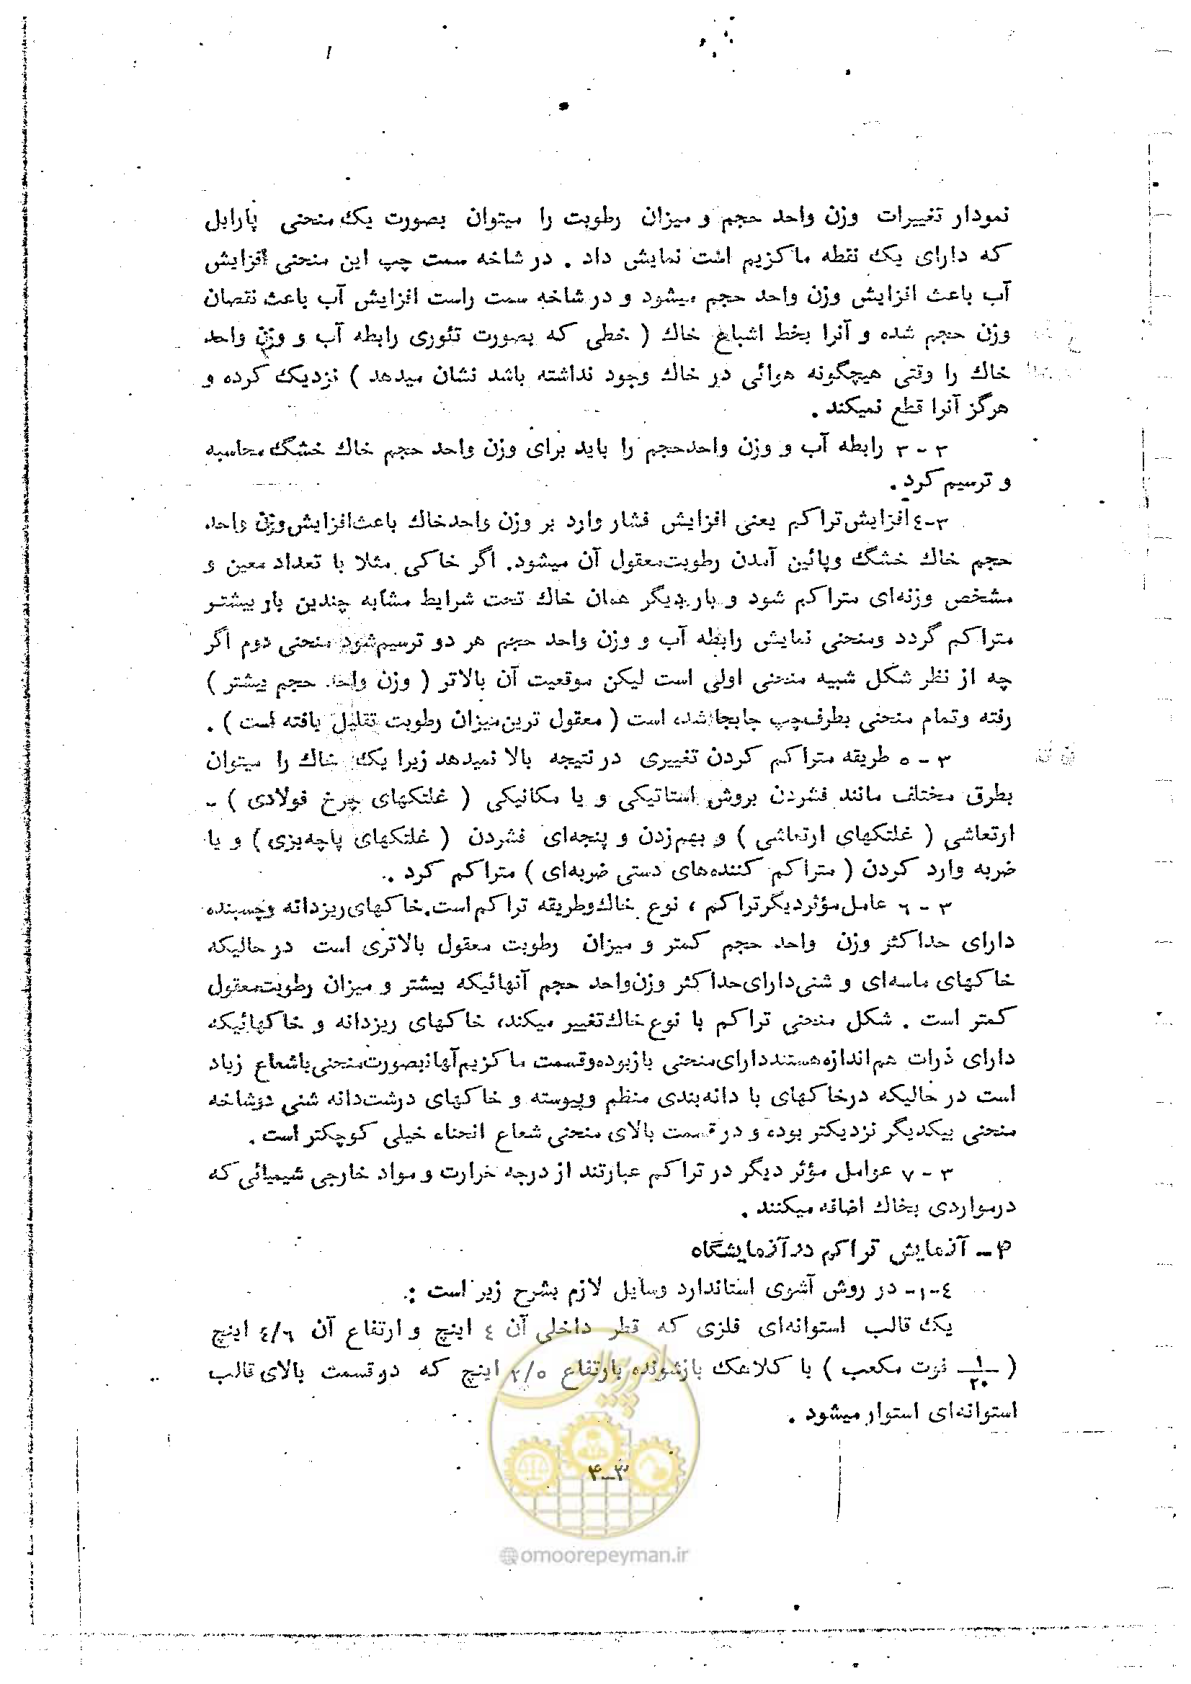 نمودار تغییرات وزن واحد حجم و میزان رطوبت را میتوان بصورت یک منحنی پارابل
که دارای یک نقطه ماکزیم است نمایش داد . در شاخه سمت چپ این منحنی افزایش
آب باعث افزایش وزن واحد حجم میشود و در شاخه سمت راست افزایش آب باعث نقصان
وزن حجم شده و آنرا بخط اشباع خاک ( خطی که بصورت تئوری رابطه آب و وزن واحد
خاک را وقتی هیچگونه هوائی در خاک وجود نداشته باشد نشان میدهد ) نزدیک کرده و
هرگز آنرا قطع نمیکند .
۳ - ۳ رابطه آب و وزن واحدحجم را باید برای وزن واحد حجم خاک خشگ محاسبه
و ترسیم کرد .
۳-٤ افزایش تراکم یعنی افزایش فشار وارد بر وزن واحدخاک باعث افزایش وزن واحد
حجم خاک خشگ وپائین آمدن رطوبت معقول آن میشود. اگر خاکی مثلا با تعداد معین و
مشخص وزنه‌ای متراکم شود و بار دیگر همان خاک تحت شرایط مشابه چندین بار بیشتر
متراکم گردد ومنحنی نمایش رابطه آب و وزن واحد حجم هر دو ترسیم شود منحنی دوم اگر
چه از نظر شکل شبیه منحنی اولی است لیکن موقعیت آن بالاتر ( وزن واحد حجم بیشتر )
رفته وتمام منحنی بطرف چپ جابجا شده است ( معقول ترین میزان رطوبت تقلیل یافته است ) .
۳ - ٥ طریقه متراکم کردن تغییری در نتیجه بالا نمیدهد زیرا یک خاک را میتوان
بطرق مختلف مانند فشردن بروش استاتیکی و یا مکانیکی ( غلتکهای چرخ فولادی ) -
ارتعاشی ( غلتکهای ارتعاشی ) و بهم‌زدن و پنجه‌ای فشردن ( غلتکهای پاچه‌بزی ) و یا
ضربه وارد کردن ( متراکم کننده‌های دستی ضربه‌ای ) متراکم کرد .
۳ - ٦ عامل مؤثر دیگر تراکم ، نوع خاک وطریقه تراکم است. خاکهای ریزدانه وچسبنده
دارای حداکثر وزن واحد حجم کمتر و میزان رطوبت معقول بالاتری است در حالیکه
خاکهای ماسه‌ای و شنی دارای حداکثر وزن واحد حجم آنهائیکه بیشتر و میزان رطوبت معقول
کمتر است . شکل منحنی تراکم با نوع خاک تغییر میکند، خاکهای ریزدانه و خاکهائیکه
دارای ذرات هم اندازه هستند دارای منحنی بازبوده وقسمت ماکزیم آنها بصورت منحنی باشعاع زیاد
است در حالیکه درخاکهای با دانه‌بندی منظم وپیوسته و خاکهای درشت‌دانه شنی دوشاخه
منحنی بیکدیگر نزدیکتر بوده و در قسمت بالای منحنی شعاع انحناء خیلی کوچکتر است .
۳ - ۷ عوامل مؤثر دیگر در تراکم عبارتند از درجه حرارت و مواد خارجی شیمیائی که
درمواردی بخاک اضافه میکنند .
۴ - آزمایش تراکم در آزمایشگاه
٤-۱- در روش آشری استاندارد وسایل لازم بشرح زیر است :
یک قالب استوانه‌ای فلزی که قطر داخلی آن ٤ اینچ و ارتفاع آن ٤/٦ اینچ
( ۱/۲۰ فوت مکعب ) با کلاهک بازشونده بارتفاع ۲/٥ اینچ که دوقسمت بالای قالب
استوانه‌ای استوار میشود .
امور پیمان
۴-۳
@omoorepeyman.ir